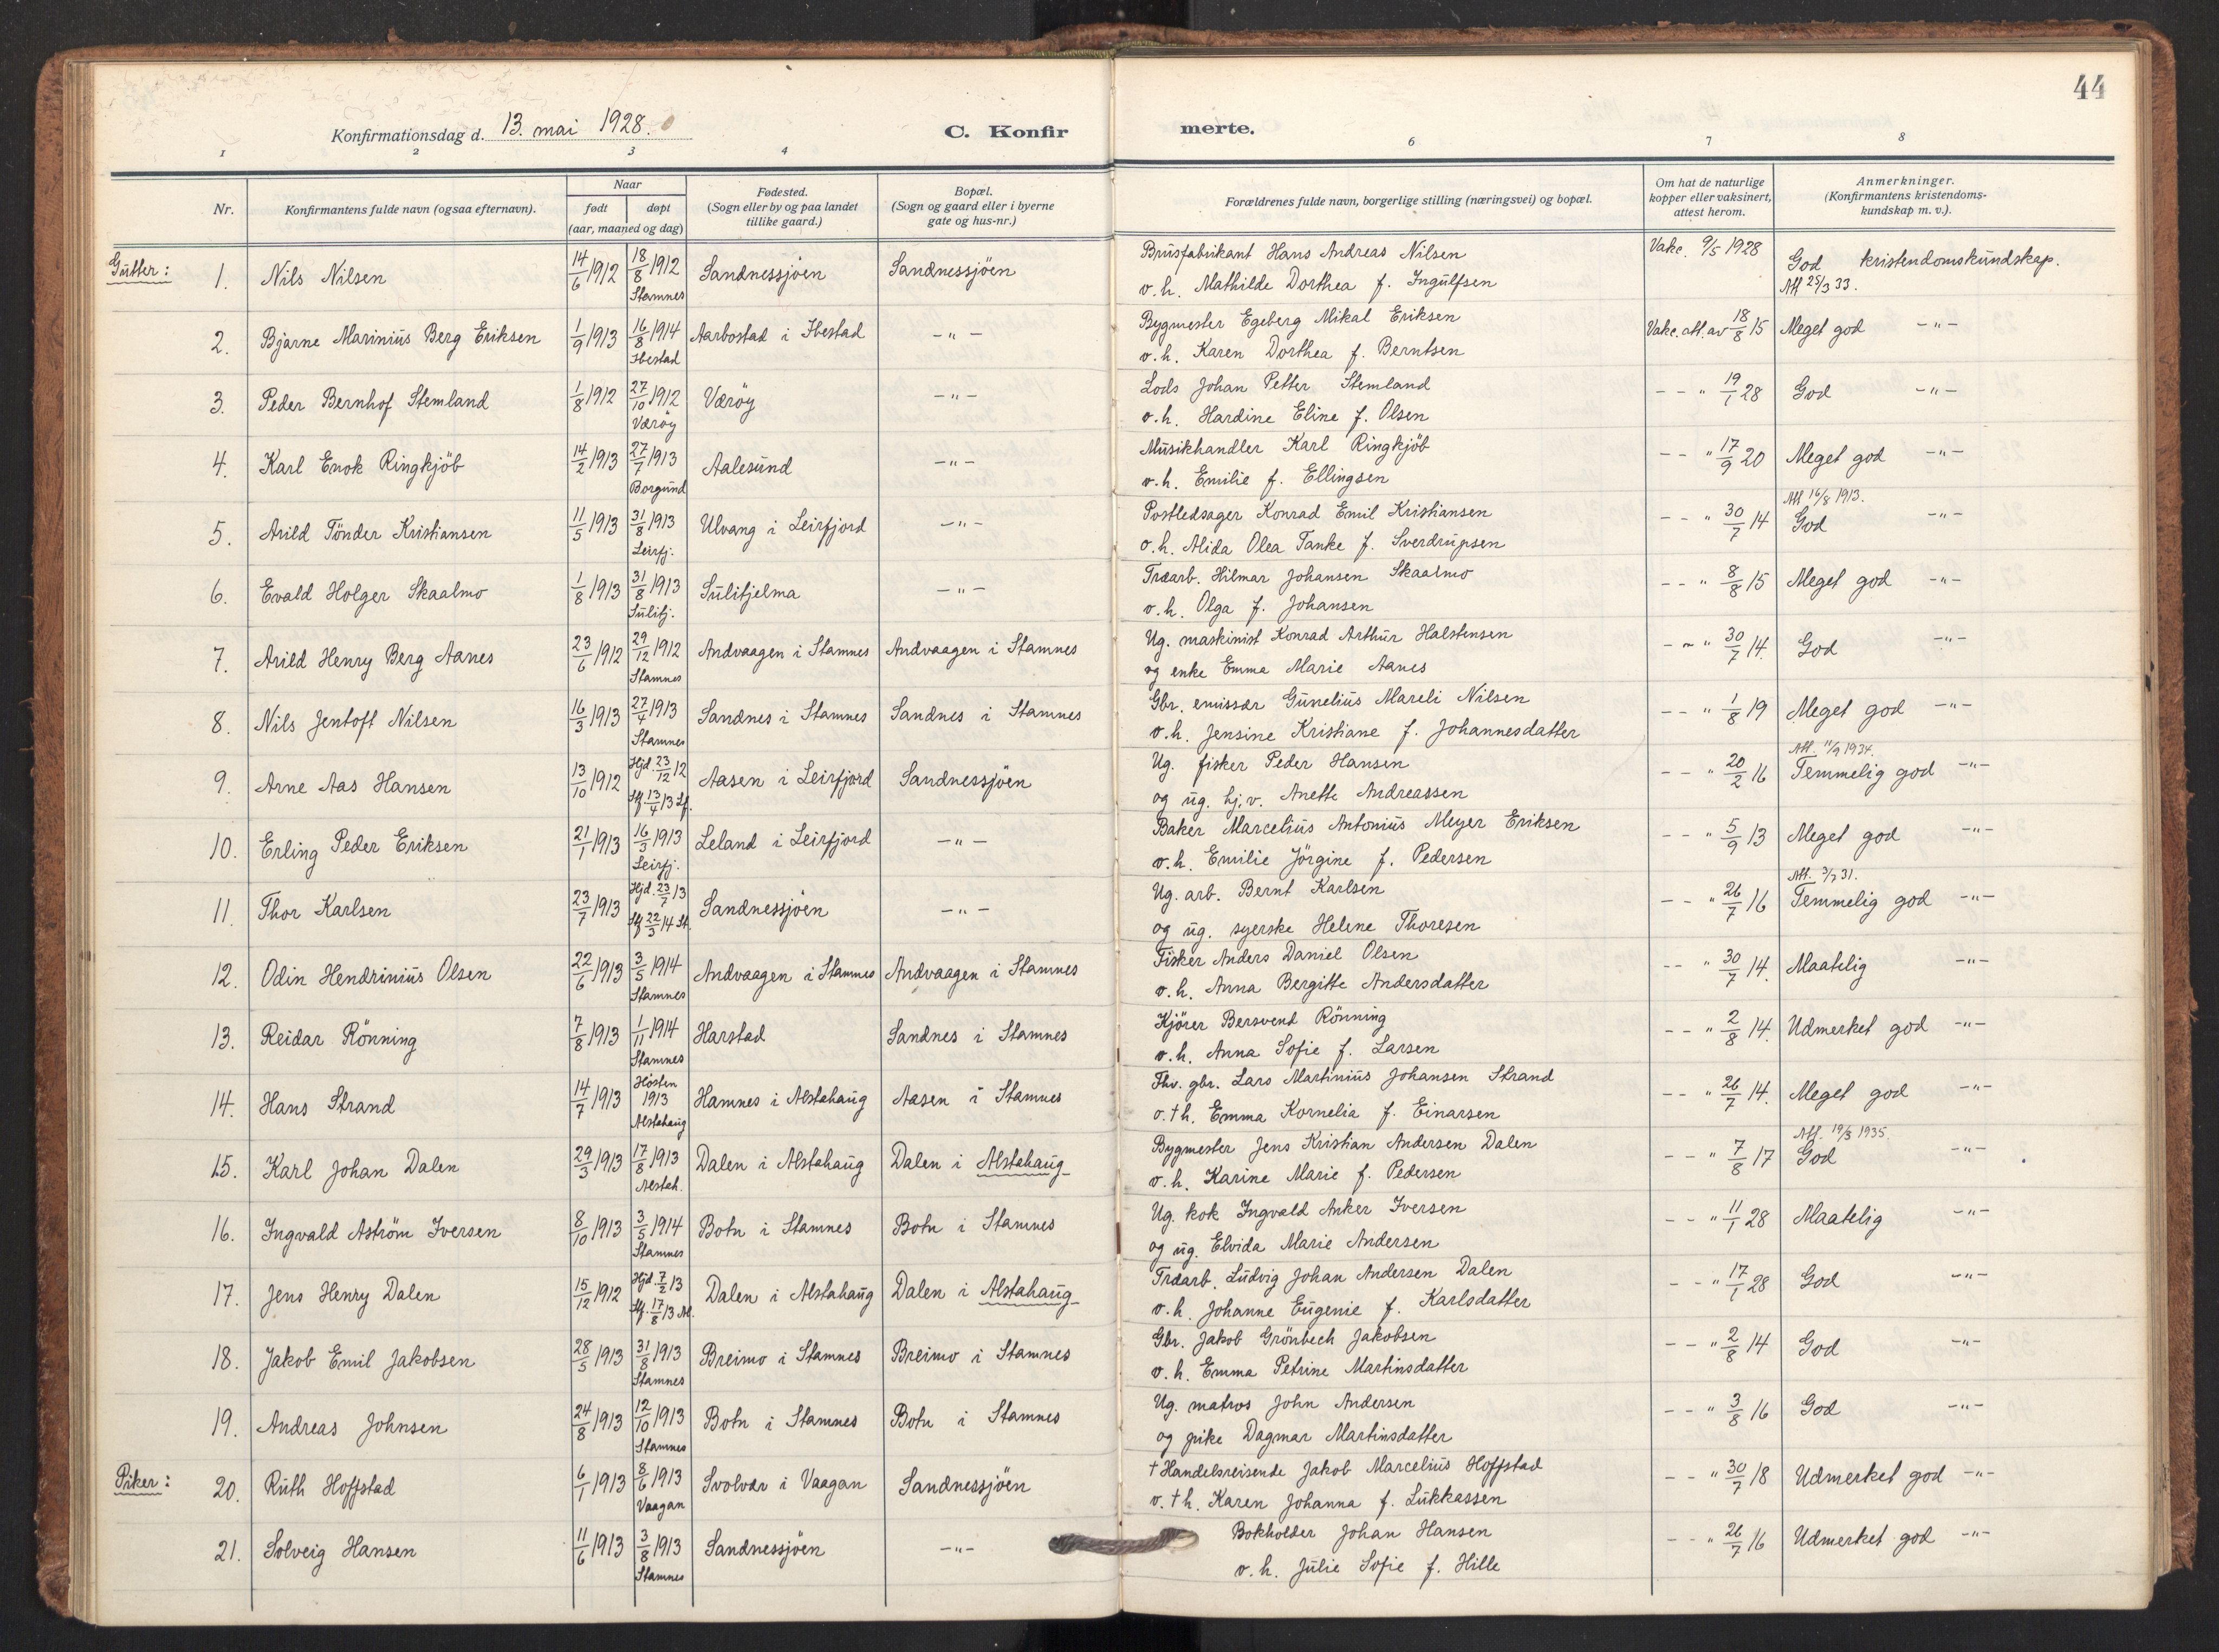 44
Konfirmationsdag d. 13. mai 1928.
C. Konfirmerte.
1 2 3 4 6 7 8
Nr.
Konfirmantens fulde navn (ogsaa efternavn).
Naar
født døpt
(aar, maaned og dag)
Fødested.
(Sogn eller by og paa landet
tillike gaard.)
Bopæl.
(Sogn og gaard eller i byerne
gate og hus-nr.)
Forældrenes fulde navn, borgerlige stilling (næringsvei) og bopæl.
Om hat de naturlige
kopper eller vaksinert,
attest herom.
Anmerkninger.
(Konfirmantens kristendoms-
kundskap m. v.).
Gutter: 1. Nils Nilsen 14/6 1912 18/8 1912 Stamnes Sandnessjöen Sandnessjöen
Brusfabrikant Hans Andreas Nilsen
o. h. Mathilde Dorthea f. Ingulfsen
Vakc. 9/5 1928 God kristendomskundskap.
Att 25/3 33.
2. Bjarne Marinius Berg Eriksen 1/9 1913 16/8 1914 Ibestad Aarbostad i Ibestad -"-
Bygmester Egeberg Mikal Eriksen
o. h. Karen Dorthea f. Berntsen
Vakc. att. av 18/8 15 Meget god -"-
3. Peder Bernhof Stemland 1/8 1912 27/10 1912 Værøy Værøy -"-
Lods Johan Petter Stemland
o. h. Hardine Eline f. Olsen
- - " 19/1 28 God -"-
4. Karl Enok Ringkjöb 14/2 1913 27/7 1913 Borgund Aalesund -"-
Musikhandler Karl Ringkjöb
o. h. Emilie f. Ellingsen
- - " 17/9 20 Meget god -"-
5. Arild Tönder Kristiansen 11/5 1913 31/8 1913 Leirfj. Ulvang i Leirfjord -"-
Postledsager Konrad Emil Kristiansen
o. h. Alida Olea Tanke f. Sverdrupsen
- - " 30/7 14 Att 16/8 1913.
God -"-
6. Evald Holger Skaalmo 1/8 1913 31/8 1913 Sulitj. Sulitjelma -"-
Træarb. Hilmar Johansen Skaalmo
o. h. Olga f. Johansen
- - " 8/8 15 Meget god -"-
7. Arild Henry Berg Aanes 23/6 1912 29/12 1912 Stamnes Andvaagen i Stamnes Andvaagen i Stamnes
Ug. maskinist Konrad Arthur Halstensen
og enke Emma Marie Aanes
- - " 30/7 14. God -"-
8. Nils Jentoft Nilsen 16/3 1913 27/4 1913 Stamnes Sandnes i Stamnes Sandnes i Stamnes
Gbr. emissær Gunelius Mareli Nilsen
o. h. Jensine Kristiane f. Johannesdatter
- - " 1/8 19 Meget god -"-
9. Arne Aas Hansen 13/10 1912 Hjd. 23/12 12 Stf. 13/4 13 Lf. Aasen i Leirfjord Sandnessjöen
Ug. fisker Peder Hansen
og ug. hj.v. Anette Andreassen
- - " 20/2 16 Att. 11/9 1934.
Temmelig god -"-
10. Erling Peder Eriksen 21/1 1913 16/3 1913 Leirfj. Leland i Leirfjord -"-
Baker Marcelius Antonius Meyer Eriksen
o. h. Emilie Jörgine f. Pedersen
- - " 5/9 13 Meget god -"-
11. Thor Karlsen 23/7 1913 Hjd. 23/7 13 Stf 22/3 14 St. Sandnessjöen -"-
Ug. arb. Bernt Karlsen
og ug. syerske Helene Thoresen
- - " 26/7 16 Att. 3/7 31.
Temmelig god -"-
12. Odin Hendrinius Olsen 22/6 1913 3/5 1914 Stamnes Andvaagen i Stamnes Andvaagen i Stamnes
Fisker Anders Daniel Olsen
o. h. Anna Bergitte Andersdatter
- - " 30/7 14. Maatelig -"-
13. Reidar Rönning 7/8 1913 1/11 1914 Stamnes Harstad Sandnes i Stamnes
Kjörer Bersvend Rönning
o. h. Anna Sofie f. Larsen
- - " 2/8 14. Udmerket god -"-
14. Hans Strand 14/7 1913 Hösten 1913 Alstahaug Hamnes i Alstahaug Aasen i Stamnes
Fhv. gbr. Lars Martinius Johansen Strand
o. † h. Emma Kornelia f. Einarsen
- - " 26/7 14. Meget god -"-
15. Karl Johan Dalen 29/3 1913 17/8 1913 Alstah. Dalen i Alstahaug Dalen i Alstahaug
Bygmester Jens Kristian Andersen Dalen
o. h. Karine Marie f. Pedersen
- - " 7/8 17 Att. 19/3 1935.
God -"-
16. Ingvald Aström Iversen 8/10 1913 3/5 1914 Stamnes Botn i Stamnes Botn i Stamnes
Ug. kok Ingvald Anker Iversen
og ug. Elvida Marie Andersen
- - " 11/1 28 Maatelig -"-
17. Jens Henry Dalen 15/12 1912 Hjd. 7/2 13 Stf. 17/8 13 Al. Dalen i Alstahaug Dalen i Alstahaug
Træarb. Ludvig Johan Andersen Dalen
o. h. Johanne Eugenie f. Karlsdatter
- - " 17/1 28 God -"-
18. Jakob Emil Jakobsen 28/5 1913 31/8 1913 Stamnes Breimo i Stamnes Breimo i Stamnes
Gbr. Jakob Grönbech Jakobsen
o. h. Emma Petrine Martinsdatter
- - " 2/8 14 God -"-
19. Andreas Johnsen 24/8 1913 12/10 1913 Stamnes Botn i Stamnes Botn i Stamnes
Ug. matros John Andersen
og pike Dagmar Martinsdatter
- - " 3/8 16 God -"-
Piker: 20. Ruth Hoffstad 6/1 1913 8/6 1913 Vaagan Svolvær i Vaagan Sandnessjöen
† Handelsreisende Jakob Marcelius Hoffstad
o. † h. Karen Johanna f. Lukkassen
- - " 30/7 18 Udmerket god -"-
21. Solveig Hansen 11/6 1913 3/8 1913 Stamnes Sandnessjöen -"-
Bokholder Johan Hansen
o. h. Julie Sofie f. Hille
- - " 26/7 16 Udmerket god -"-